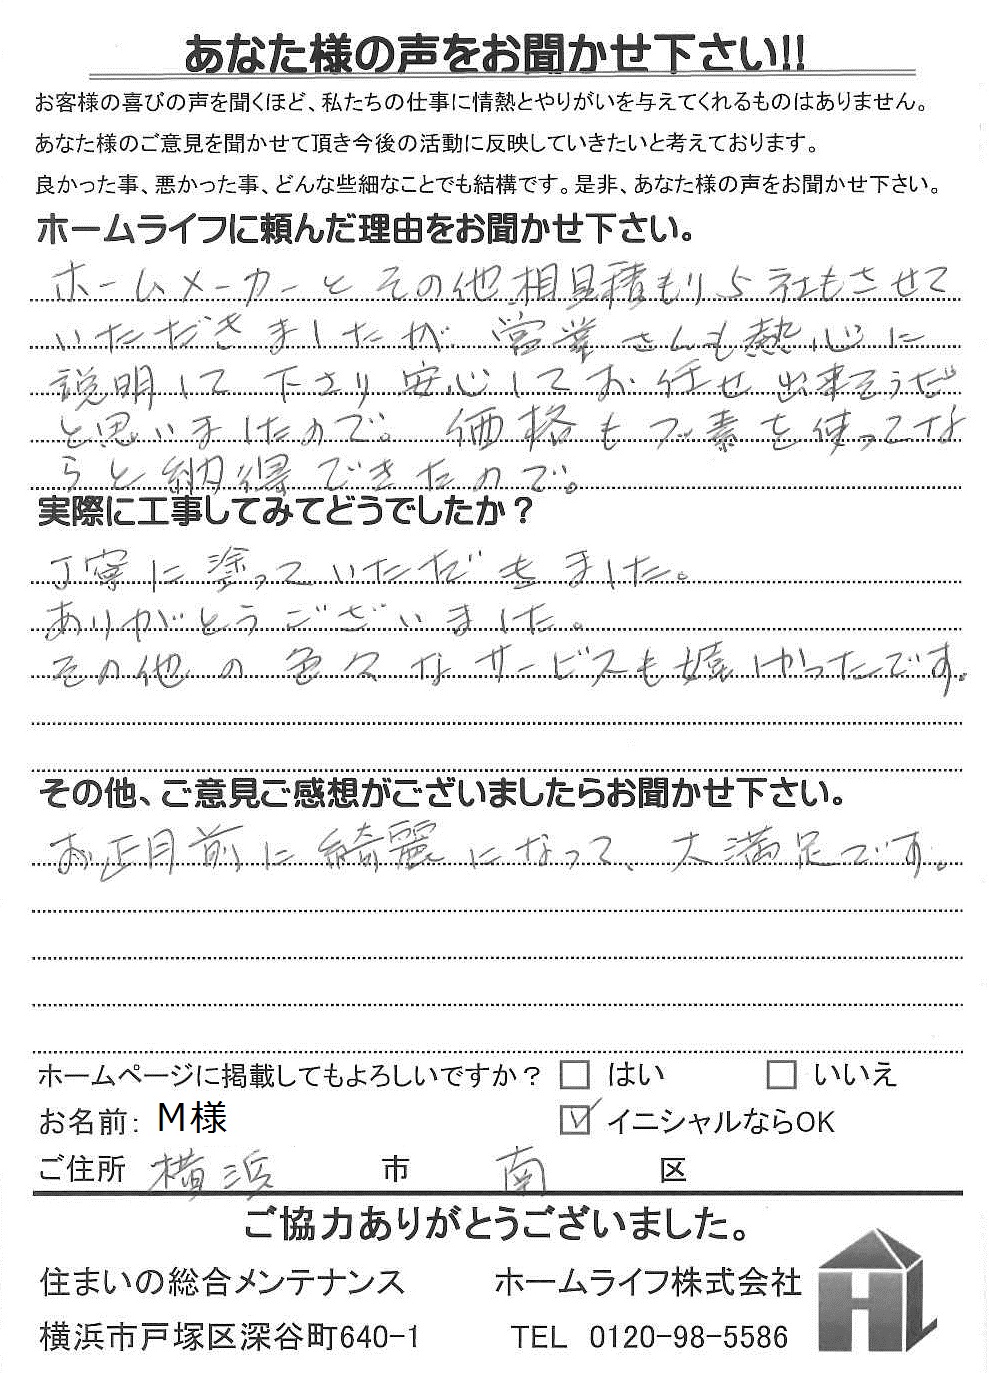 あなた様の声をお聞かせ下さい!!
お客様の喜びの声を聞くほど、私たちの仕事に情熱とやりがいを与えてくれるものはありません。
あなた様のご意見を聞かせて頂き今後の活動に反映していきたいと考えております。
良かった事、悪かった事、どんな些細なことでも結構です。是非、あなた様の声をお聞かせ下さい。
ホームライフに頼んだ理由をお聞かせ下さい。
ホームメーカーとその他相見積もり5社もさせて
いただきましたが、営業さんも熱心に
説明して下さり安心してお任せ出来そうだ
と思いましたので。価格もフッ素を使ってな
らと納得できたので。
実際に工事してみてどうでしたか？
丁寧に塗っていただきました。
ありがとうございました。
その他の色々なサービスも嬉しかったです。
その他、ご意見ご感想がございましたらお聞かせ下さい。
お正月前に綺麗になって、大満足です。
ホームページに掲載してもよろしいですか？ □ はい □ いいえ
お名前: M様 ☑ イニシャルならOK
ご住所 横浜 市 南 区
ご協力ありがとうございました。
住まいの総合メンテナンス ホームライフ株式会社
横浜市戸塚区深谷町640-1 TEL 0120-98-5586
HL